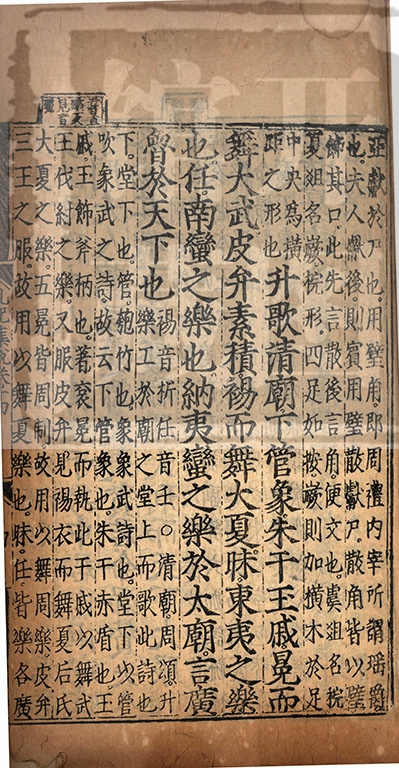 亞獻於尸也。用璧角。即周禮內宰所謂瑤爵
也。夫人爵後。則賓用璧散獻尸。散角皆以璧
飾其口。此先言散後言角。便文也。虞俎名梡
夏俎名嶡。梡形四足如案。嶡則加橫木於足
中央為橫
距之形也
升歌清廟下管象朱干王戚冕而
舞大武皮弁素積裼而舞大夏。昧。東夷之樂
也。任。南蠻之樂也納夷蠻之樂於太廟。言廣
魯於天下也
裼音析任音壬○清廟。周頌。升
樂工於廟之堂上而歌此詩也
下。堂下也。管。匏竹也。象。象武詩也。堂下以管
吹象武之詩。故云下管象也。朱干赤盾也。王
戚王飾斧柄也。著袞冕而執此干戚以舞武
王伐紂之樂。又服皮弁見裼衣而舞夏后氏
大夏之樂。五冕皆周制。故用以舞周樂。皮弁
三王之服。故用以舞夏樂也。昧。任。皆樂名廣